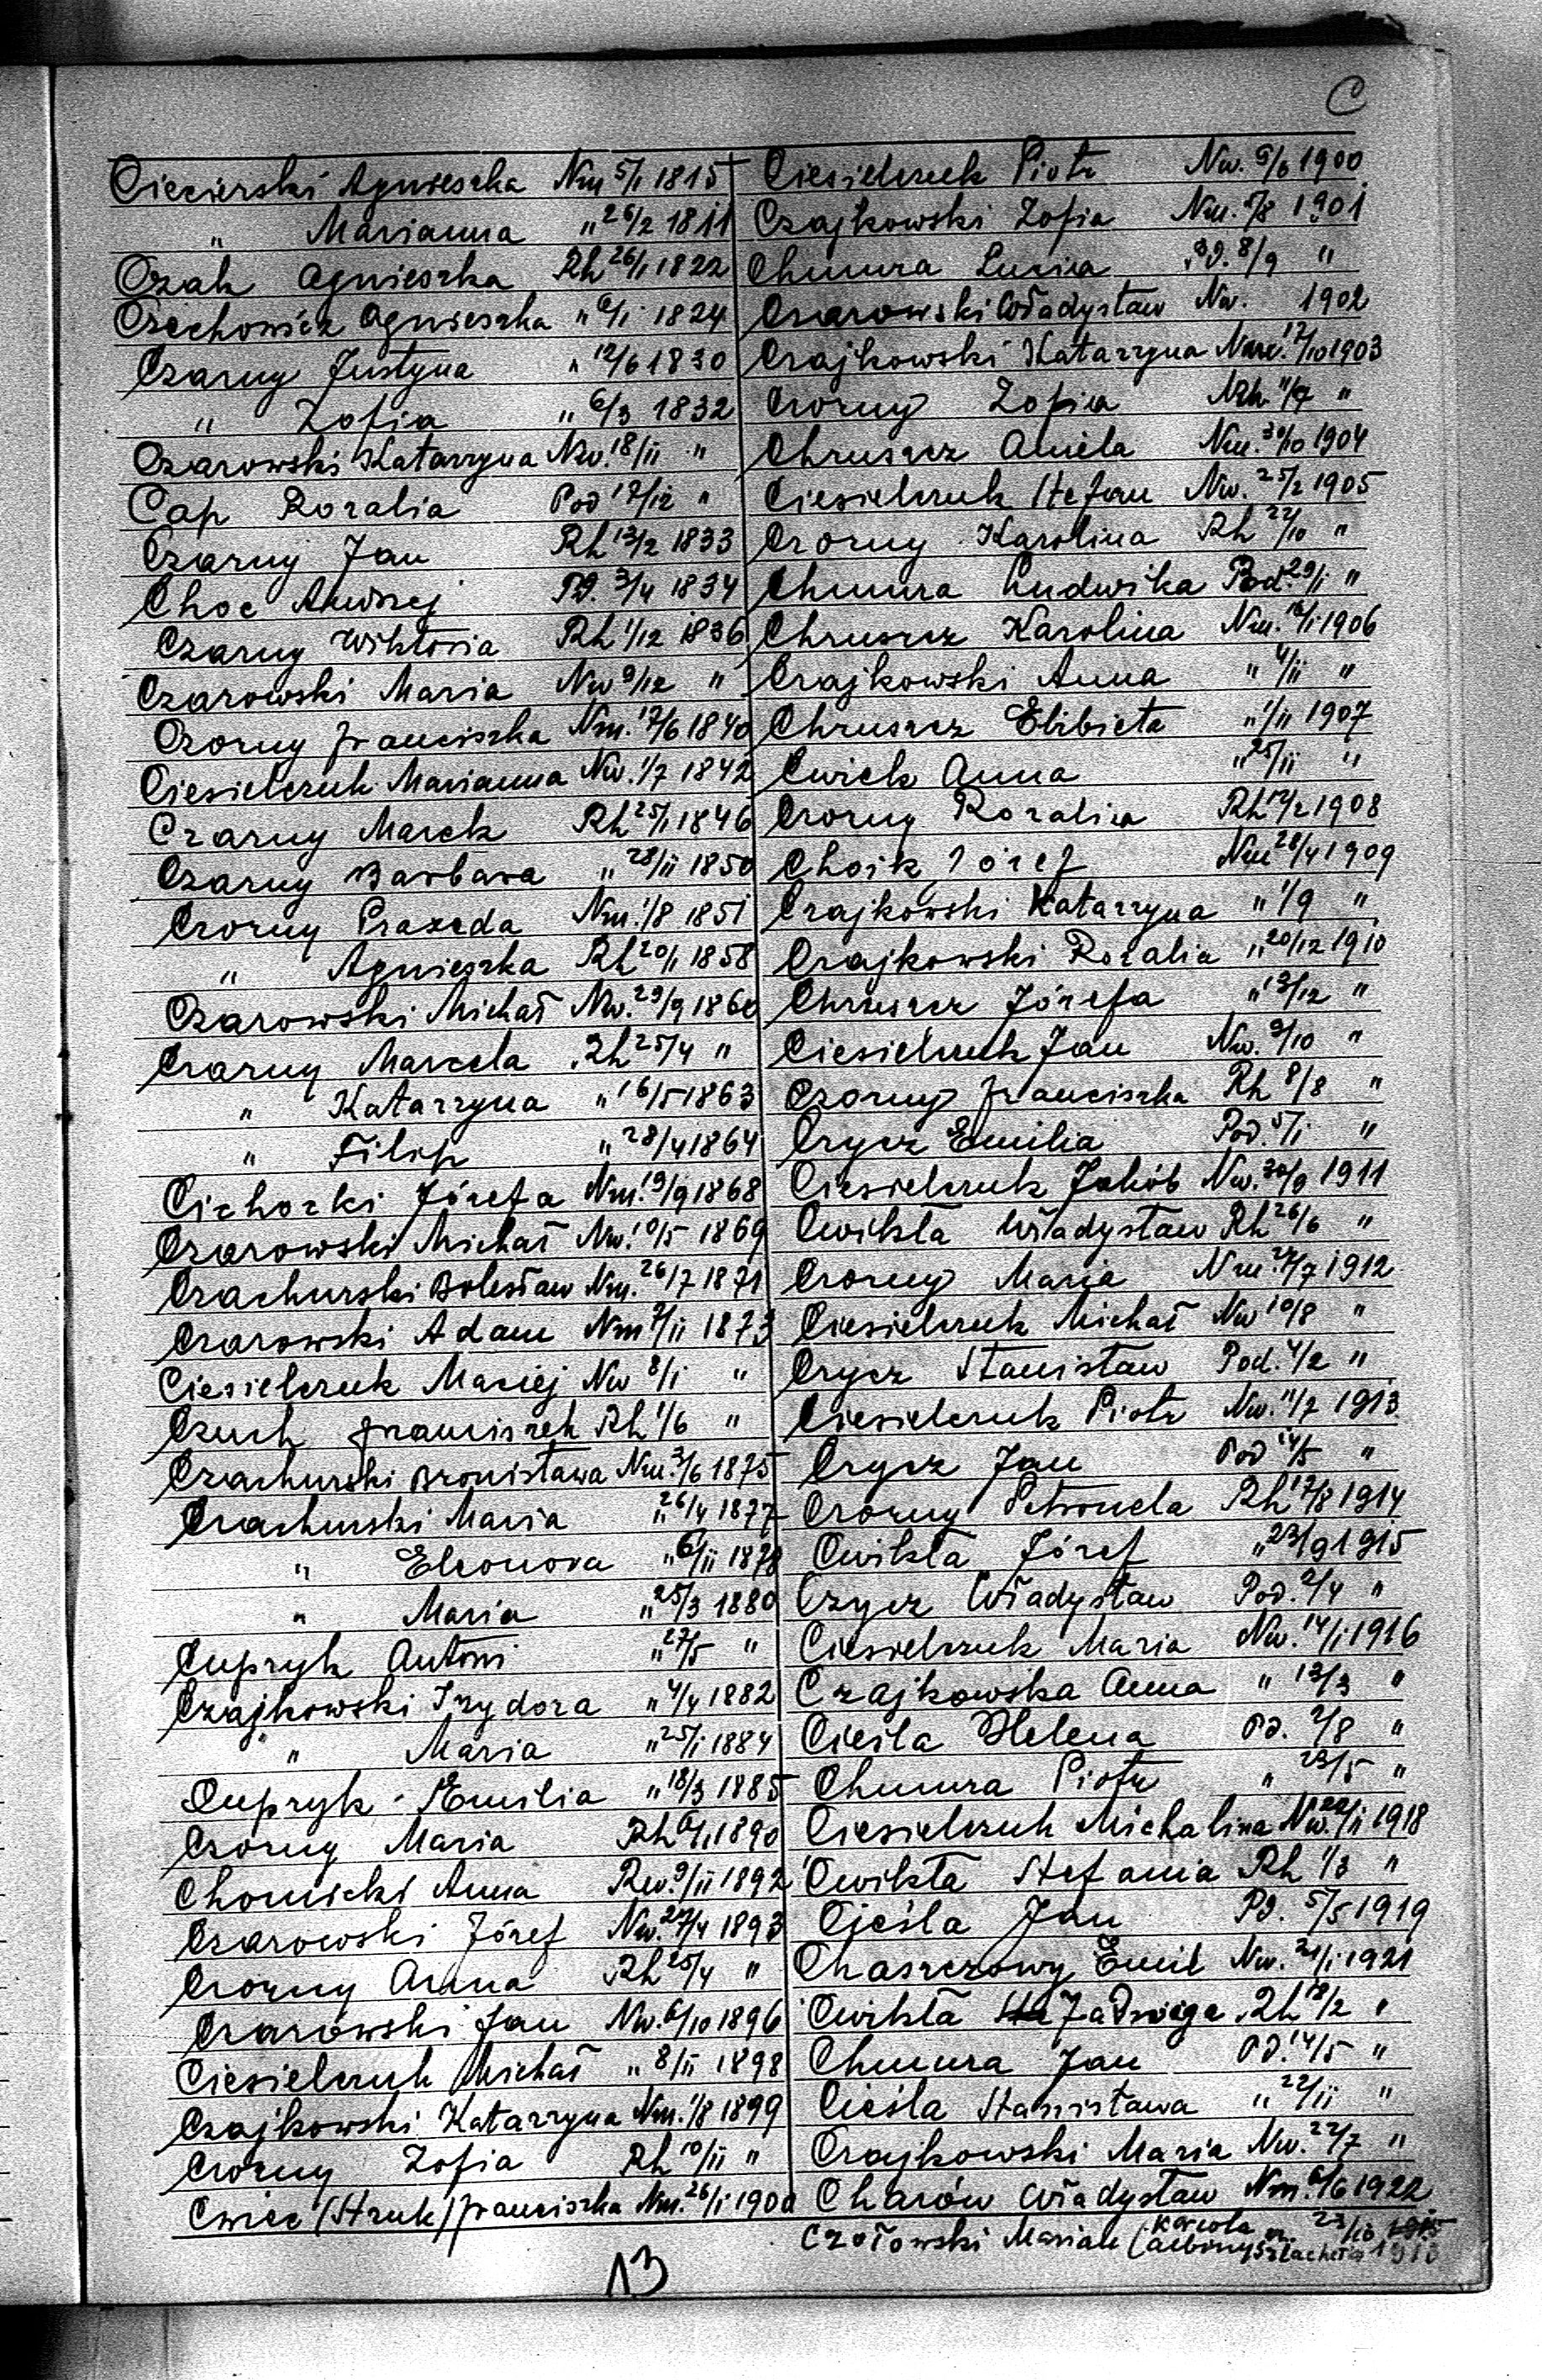 C
Ciecierski Agnieszka Nm 5/1 1815
" Marianna " 26/2 1811
Czak Agnieszka Rh 26/1 1822
Czechowicz Agnieszka " 6/1 1824
Czarny Justyna " 12/6 1830
" Zofia " 6/3 1832
Czarowski Katarzyna Nw. 18/11 "
Cap Rozalia Pod 17/12 "
Czarny Jan Rh 13/2 1833
Choc Andrzej Pd. 3/4 1834
Czarny Wiktoria Rh 1/12 1836
Czarowski Maria Nw 9/12 "
Czorny Franciszka Nm. 17/6 1840
Ciesielczuk Marianna Nw. 1/7 1842
Czarny Marek Rh 25/1 1846
Czarny Barbara " 28/11 1850
Czorny Praxeda Nm. 1/8 1851
" Agnieszka Rh 20/1 1858
Czarowski Michał Nw. 29/9 1860
Czarny Marcela Rh 25/4 "
" Katarzyna " 16/5 1863
" Filip " 28/4 1864
Cichocki Józefa Nm. 19/9 1868
Czarowski Michał Nw. 10/5 1869
Czachurski Bolesław Nm. 26/7 1871
Czarowski Adam Nm 7/11 1873
Ciesielczuk Maciej Nw 8/1 "
Czuch Franciszek Rh 1/6 "
Czachurski Bronisława Nm. 3/6 1875
Czachurski Maria " 26/4 1877
" Eleonora " 6/11 1878
" Maria " 25/3 1880
Cupryk Antoni " 27/5 "
Czajkowski Izydora " 4/4 1882
" Maria " 25/1 1884
Cupryk Emilia " 18/3 1885
Czorny Maria Rh 6/1 1890
Chomicki Anna Rw. 9/11 1892
Czarowski Józef Nw. 27/4 1893
Czorny Anna Rh 25/4 "
Czarowski Jan Nw. 6/10 1896
Ciesielczuk Michał " 8/11 1898
Czajkowski Katarzyna Nm. 1/8 1899
Czorny Zofia Rh 10/11 "
Cwiec (Struk) Franciszka Nm. 26/1 1900
Ciesielczuk Piotr Nw. 9/6 1900
Czajkowski Zofia Nm. 5/8 1901
Chmura Łucja Pd. 8/9 "
Czarowski Władysław Nw. 1902
Czajkowski Katarzyna 12/10 1903
Czorny Zofia "
Chruszcz Aniela Nm. 30/10 1904
Ciesielczuk Stefan Nw. 25/2 1905
Czorny Karolina Rh 22/10 "
Chmura Ludwika Pod. 29/1 "
Chruszcz Karolina Nm. 16/1 1906
Czajkowski Anna " 4/11 "
Chruszcz Elżbieta " 1/11 1907
Cwiek Anna " 25/11 "
Czorny Rozalia Rh 12/2 1908
Choik Józef Nm 28/4 1909
Czajkowski Katarzyna " 1/9 "
Czajkowski Rozalia " 20/12 1910
Chruszcz Józefa " 13/12 "
Ciesielczuk Jan Nw. 9/10 "
Czorny Franciszka Rh 8/8 "
Czycz Emilia Pod. 5/1 "
Ciesielczuk Jakób Nw. 30/9 1911
Cwikła Władysław Rh 26/6 "
Czorny Maria Nm. 27/7 1912
Ciesielczuk Michał Nw 10/8 "
Czycz Stanisław Pod. 4/2 "
Ciesielczuk Piotr Nw. 11/7 1913
Czycz Jan Pod 14/5 "
Czorny Petronela Rh 17/8 1914
Cwikła Józef " 23/9 1915
Czycz Władysław Pod. 2/4 "
Ciesielczuk Maria Nw. 14/1 1916
Czajkowska Anna " 13/3 "
Cieśla Helena Pd. 2/8 "
Chmura Piotr " 23/5 "
Ciesielczuk Michalina Nw. 22/11 1918
Cwikła Stefania Rh 1/3 "
Cieśla Jan Pd. 5/5 1919
Chaszczowy Emil Nw. 21/1 1921
Cwikła Jadwiga Rh 18/2 "
Chmura Jan Pd. 14/5 "
Cieśla Stanisława " 22/11 "
Czajkowski Maria Nw. 22/7 "
Charów Władysław Nm. 6/6 1922
Czołowski Marian (Karola
Albiny Szlachetka 23/10 1913
13